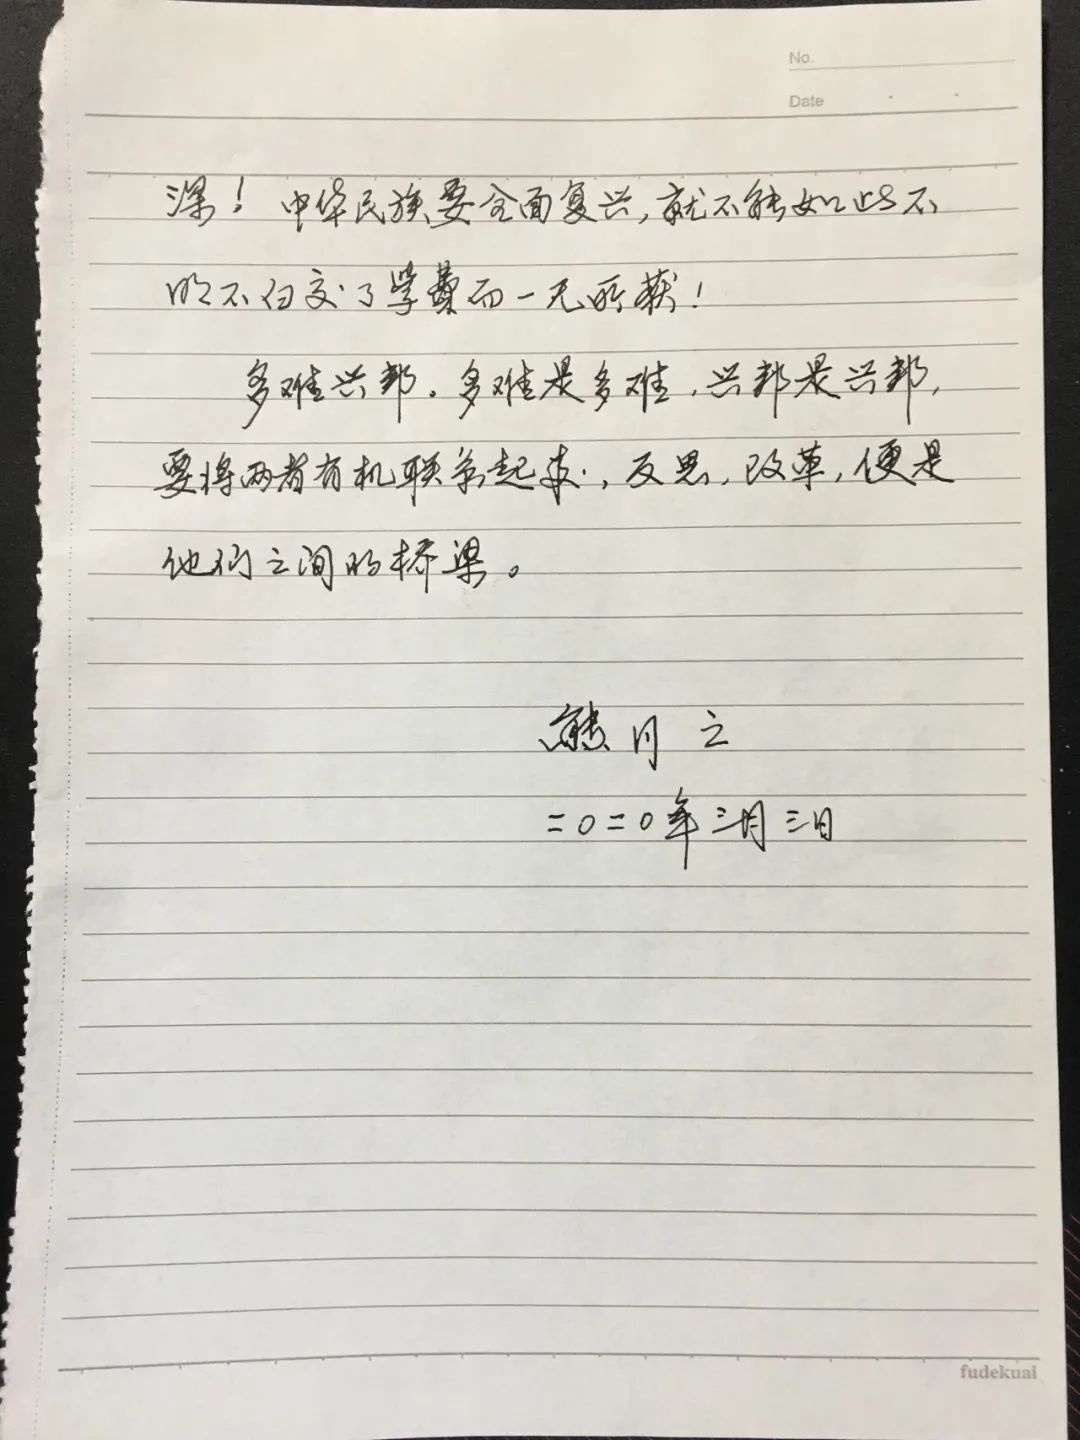 No.
Date
深！中华民族要全面复兴，就不能如此不
明不白交了学费而一无所获！
多难兴邦。多难是多难，兴邦是兴邦，
要将两者有机联系起来，反思，改革，便是
他们之间的桥梁。
熊月之
二〇二〇年三月三日
fudekuai